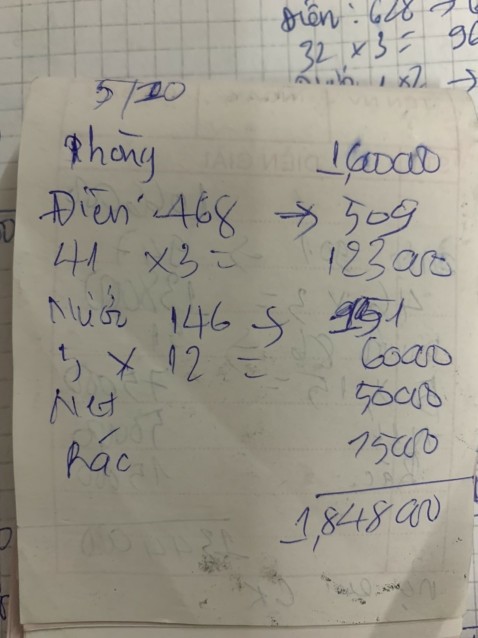 Điện: 628 →
32 x 3 = 96
5/10
Phòng 1,600000
Điện 468 → 509
41 x3 = 123000
Nước 146 → 151
5 x 12 = 60000
Net 50000
Rác 15000
1,848000